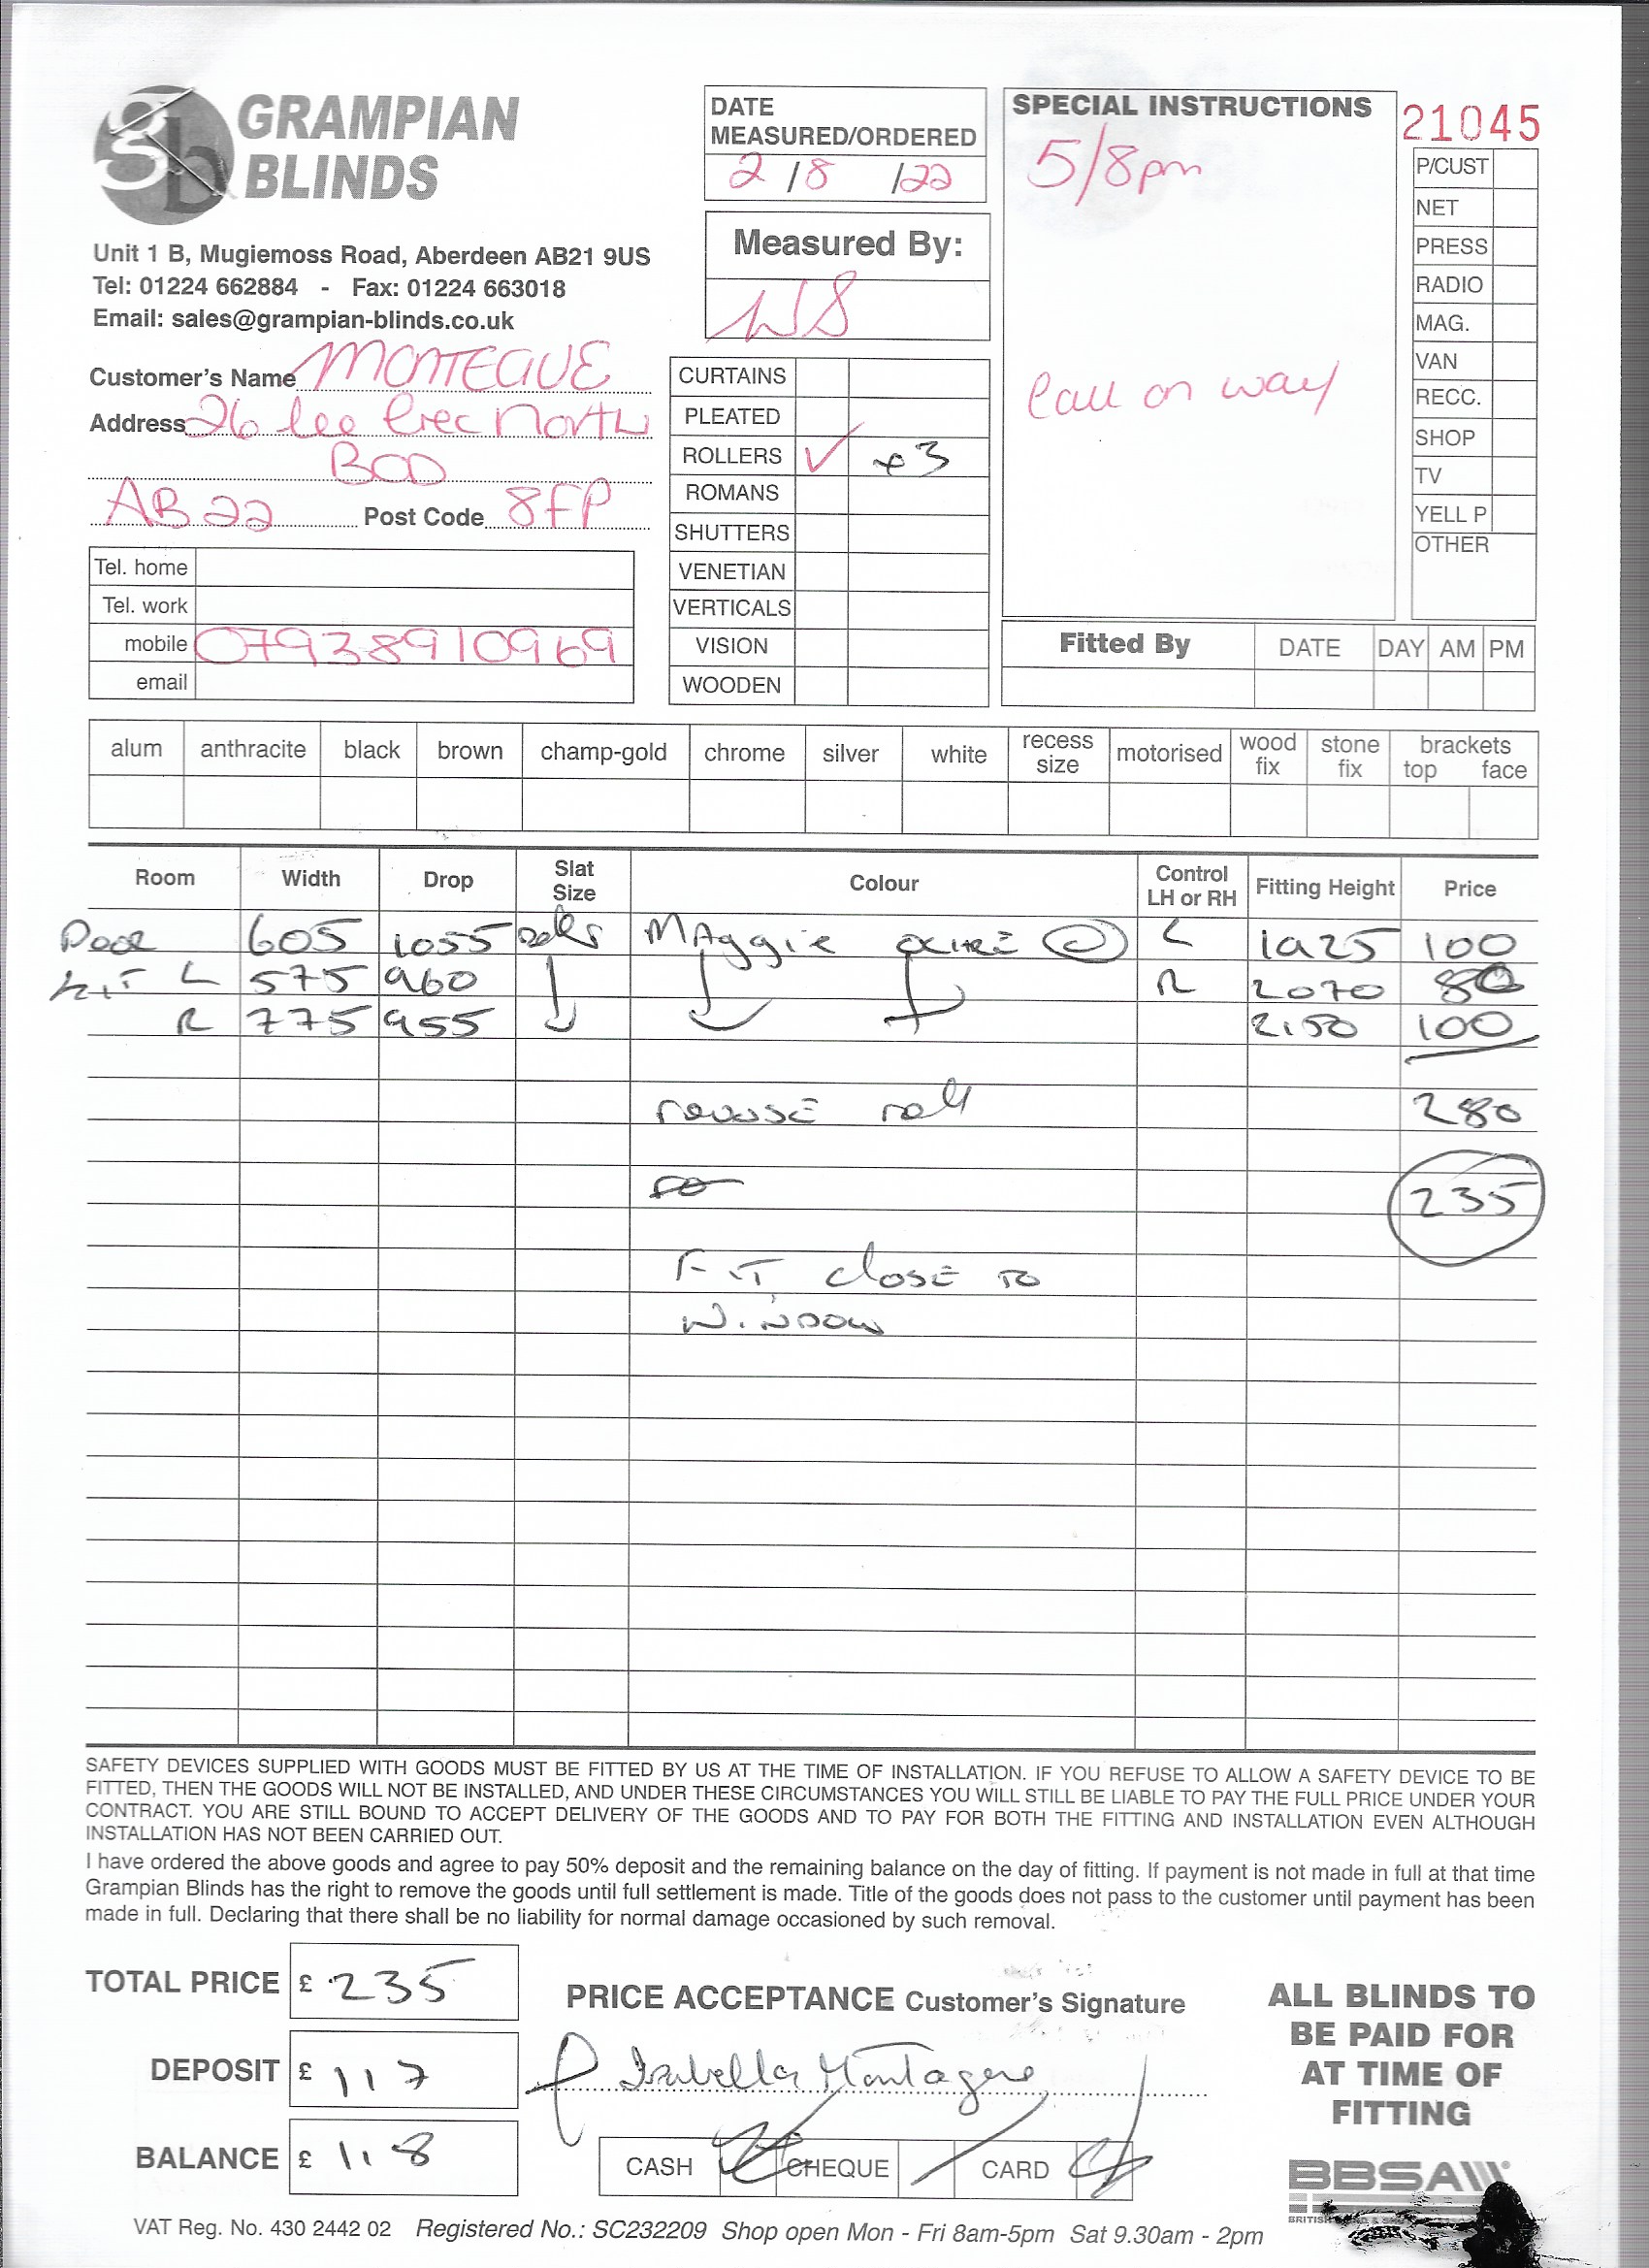 GRAMPIAN
BLINDS
Unit 1 B, Mugiemoss Road, Aberdeen AB21 9US
Tel: 01224 662884 - Fax: 01224 663018
Email: sales@grampian-blinds.co.uk
DATE
MEASURED/ORDERED
2/8/22
Measured By:
WS
SPECIAL INSTRUCTIONS
5/8pm
Call on way
21045
P/CUST
NET
PRESS
RADIO
MAG.
VAN
RECC.
SHOP
TV
YELL P
OTHER
Customer's Name MONTEGUE
Address 26 lee Cres North
BOD
AB22 Post Code 8FP
Tel. home
Tel. work
mobile 07938910969
email
CURTAINS
PLEATED
ROLLERS ✓ x3
ROMANS
SHUTTERS
VENETIAN
VERTICALS
VISION
WOODEN
Fitted By DATE DAY AM PM
alum anthracite black brown champ-gold chrome silver white recess size motorised wood fix stone fix brackets top face
Room Width Drop Slat Size Colour Control LH or RH Fitting Height Price
Door 605 1055 Maggie L 1925 100
KIT L 575 960 R 2070 80
R 775 955 2150 100
reverse roll 280
235
FIT close to
WINDOW
SAFETY DEVICES SUPPLIED WITH GOODS MUST BE FITTED BY US AT THE TIME OF INSTALLATION. IF YOU REFUSE TO ALLOW A SAFETY DEVICE TO BE
FITTED, THEN THE GOODS WILL NOT BE INSTALLED, AND UNDER THESE CIRCUMSTANCES YOU WILL STILL BE LIABLE TO PAY THE FULL PRICE UNDER YOUR
CONTRACT. YOU ARE STILL BOUND TO ACCEPT DELIVERY OF THE GOODS AND TO PAY FOR BOTH THE FITTING AND INSTALLATION EVEN ALTHOUGH
INSTALLATION HAS NOT BEEN CARRIED OUT.
I have ordered the above goods and agree to pay 50% deposit and the remaining balance on the day of fitting. If payment is not made in full at that time
Grampian Blinds has the right to remove the goods until full settlement is made. Title of the goods does not pass to the customer until payment has been
made in full. Declaring that there shall be no liability for normal damage occasioned by such removal.
TOTAL PRICE £ 235
DEPOSIT £ 117
BALANCE £ 118
PRICE ACCEPTANCE Customer's Signature
Isabella Montague
CASH CHEQUE CARD
ALL BLINDS TO
BE PAID FOR
AT TIME OF
FITTING
BBSA
VAT Reg. No. 430 2442 02 Registered No.: SC232209 Shop open Mon - Fri 8am-5pm Sat 9.30am - 2pm